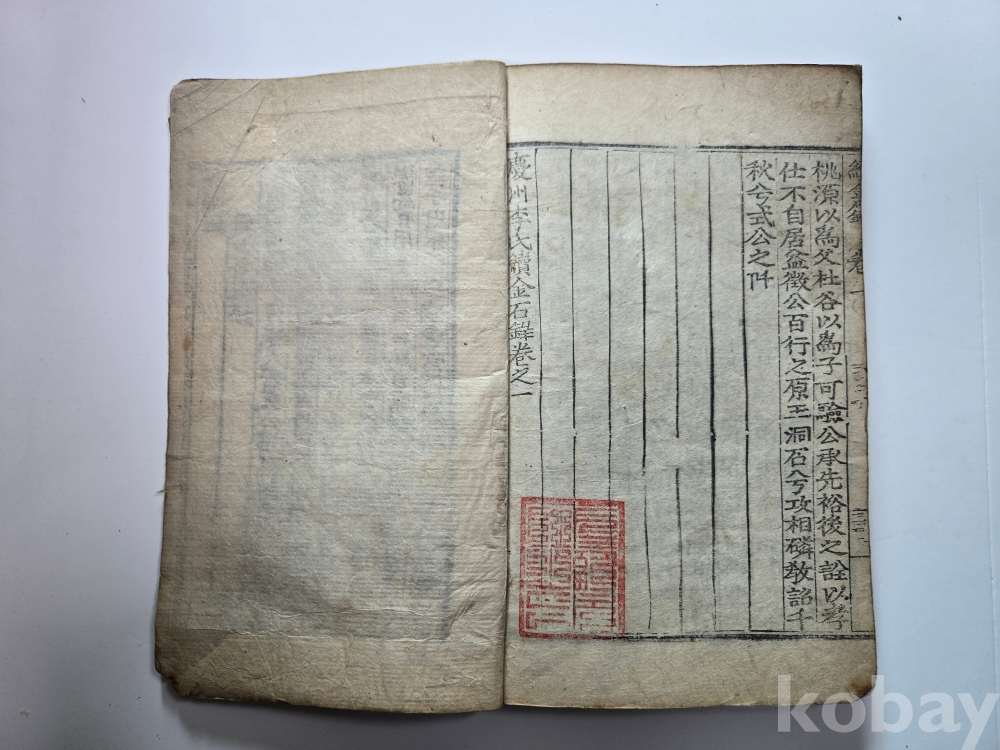 桃源以爲父杜谷以爲子可驗公承先裕後之詮以孝
仕不自居益徵公百行之原玉洞石兮攻相磷敎詔千
秋兮式公之阡
慶州李氏續金石錄卷之一
kobay